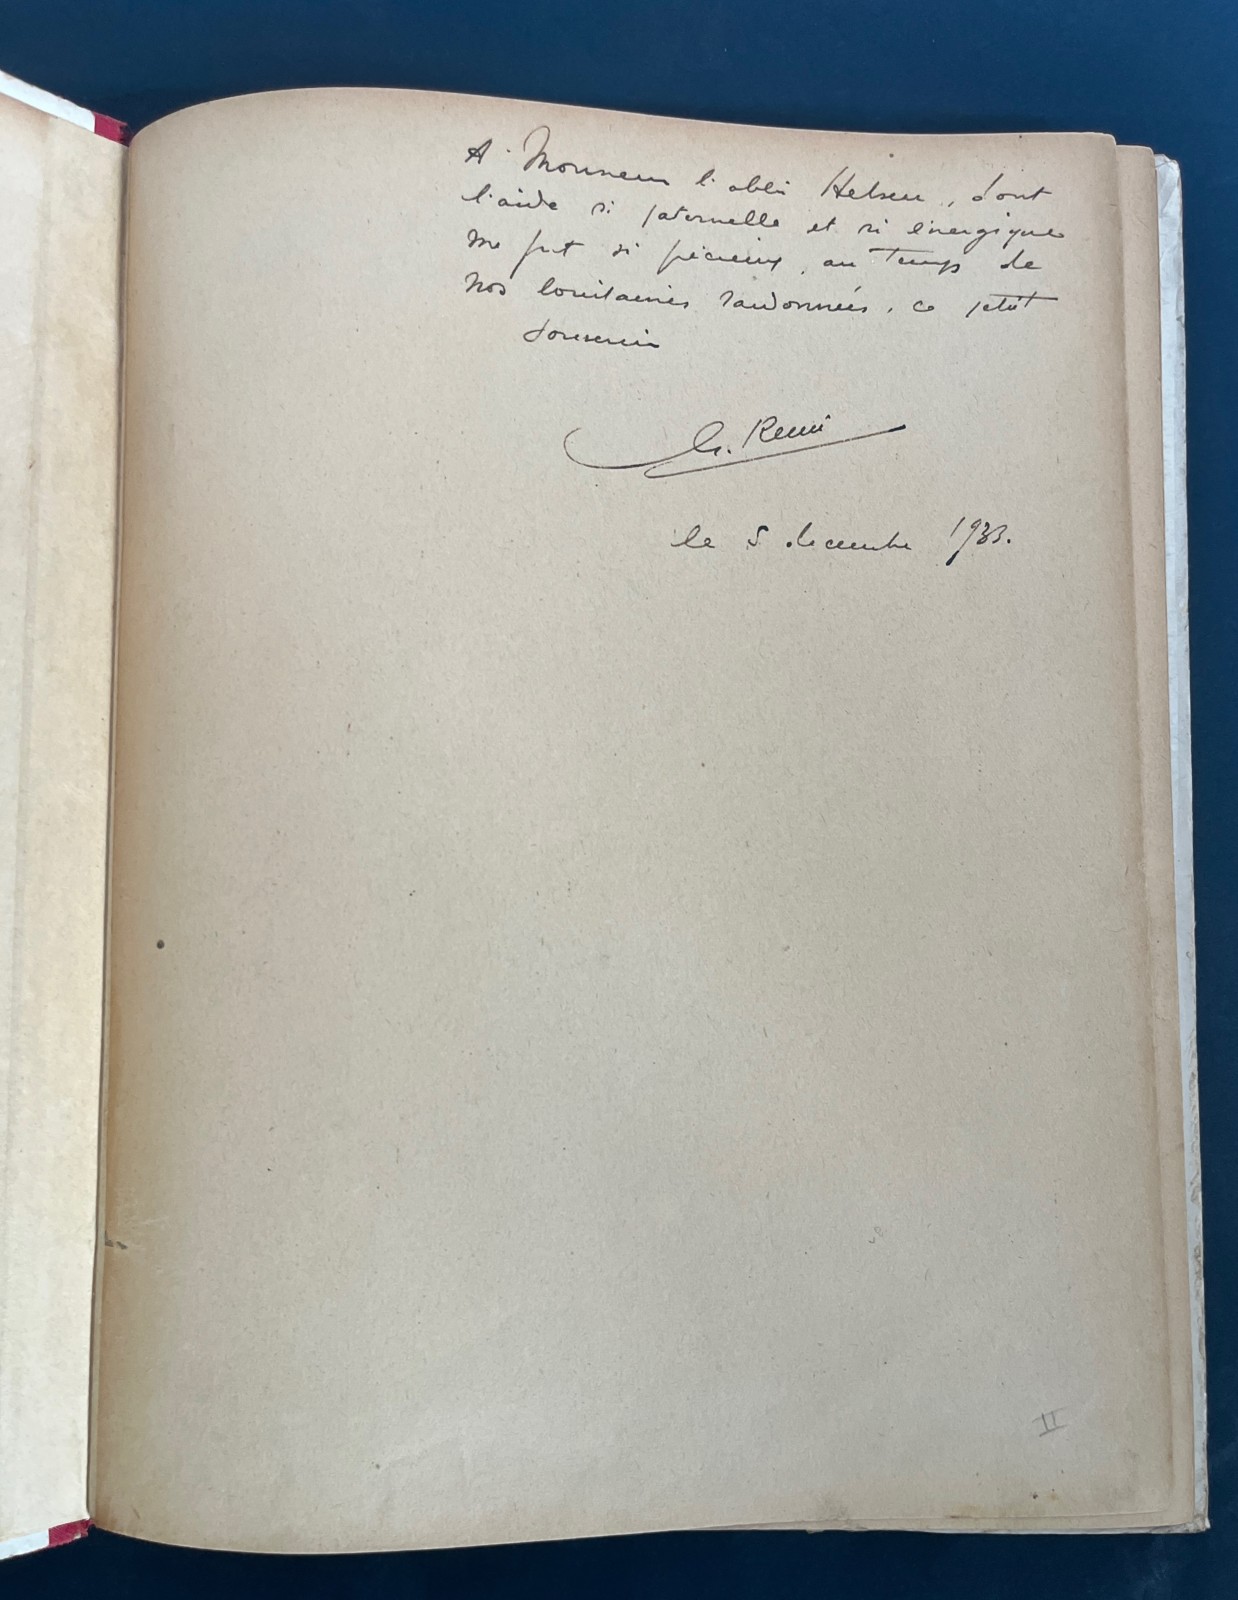 A Monsieur l'abbé Helsen, dont
l'aide si paternelle et si énergique
me fut si précieux, au temps de
nos lointaines randonnées, ce petit
souvenir
G. Remi
le 5 decembre 1933.
II